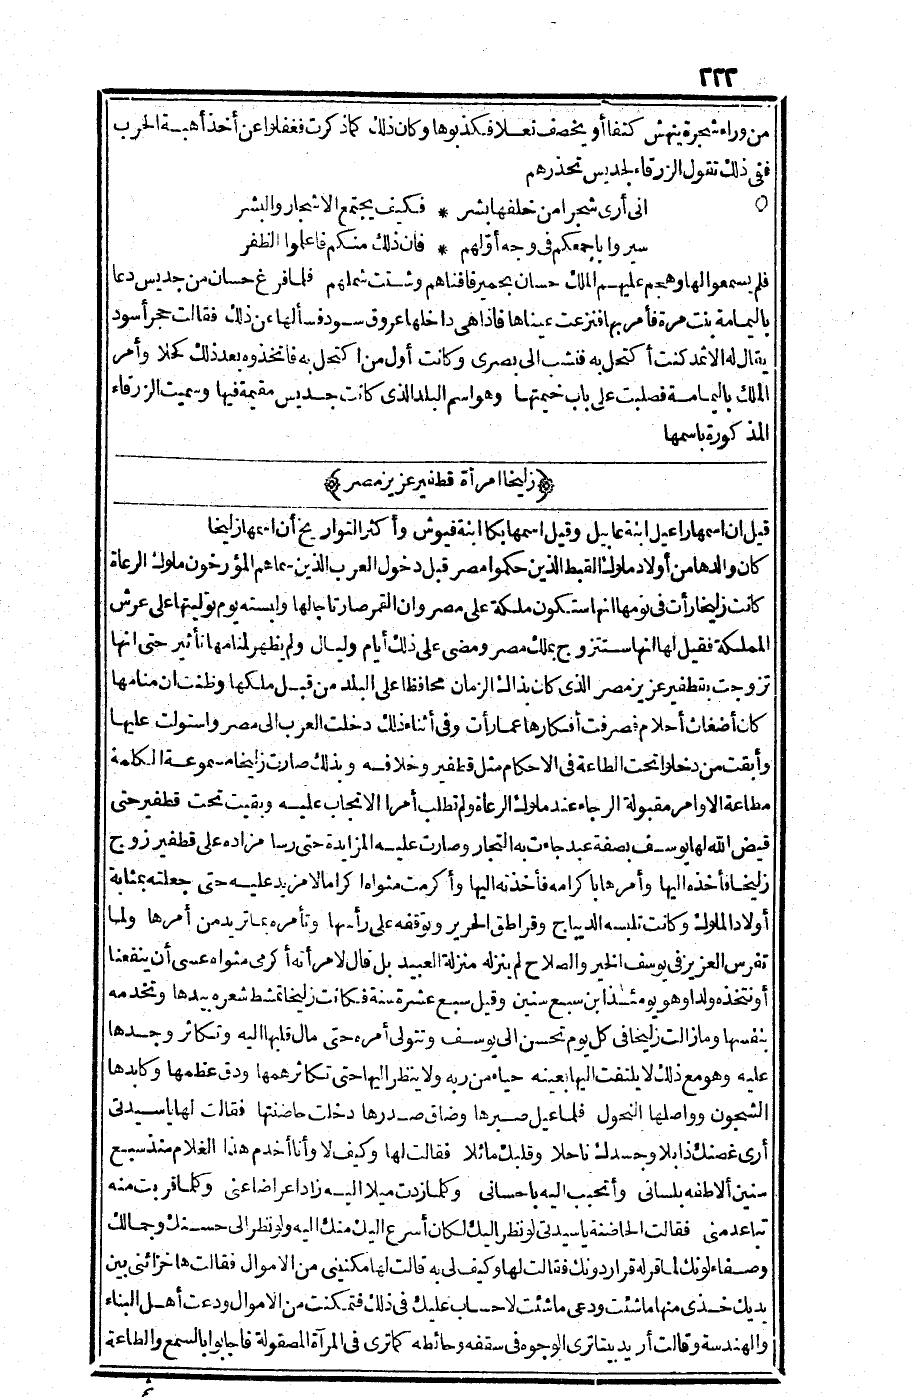 ٢٢٢
من وراء شجرة ينهش كتفا أو يخصف نعلا فكذبوها وكان ذلك كما ذكرت فغفلوا عن أخذ أهبة الحرب
ففي ذلك تقول الزرقاء لجديس تحذرهم
انى أرى شجرا من خلفها بشر * فكيف يجتمع الاشجار والبشر
سيروا بأجمعكم فى وجه أولهم * فان ذلك منكم فاعلموا الظفر
فلم يسمعوا لها وهجم عليهم الملك حسان بحمير فأفناهم وشتت شملهم فلما فرغ حسان من جديس دعا
باليمامة بنت مرة فأمر بها فنزعت عيناها فاذا هى داخلها عروق سود فسألها عن ذلك فقالت حجر أسود
يقال له الاثمد كنت أكتحل به فنشب الى بصرى وكانت أول من اكتحل به فاتخذوه بعد ذلك كحلا وأمر
الملك باليمامة فصلبت على باب خيمتها وهو اسم البلد الذى كانت جديس مقيمة فيها وسميت الزرقاء
المذكورة باسمها
﴿زليخا امرأة قطفير عزيز مصر﴾
قيل ان اسمها راعيل ابنة عابيل وقيل اسمها بكا ابنة فيوش وأكثر التواريخ أن اسمها زليخا
كان والدها من أولاد ملوك القبط الذين حكموا مصر قبل دخول العرب الذين سماهم المؤرخون ملوك الرعاة
كانت زليخا رأت فى نومها انها ستكون ملكة على مصر وان القمر صار تاجا لها ولبسته يوم توليتها على عرش
المملكة فقيل لها انها ستتزوج بملك مصر ومضى على ذلك أيام وليال ولم يظهر لمنامها تأثير حتى انها
تزوجت بقطفير عزيز مصر الذى كان بذاك الزمان محافظا على البلد من قبل ملكها وظنت ان منامها
كان أضغاث أحلام فصرفت أفكارها عما رأت وفى أثناء ذلك دخلت العرب الى مصر واستولت عليها
وأبقت من دخلوا تحت الطاعة فى الاحكام مثل قطفير وخلافه وبذلك صارت زليخا مسموعة الكلمة
مطاعة الاوامر مقبولة الرجاء عند ملوك الرعاة ولم تطلب أمرا الا تجاب عليه وبقيت تحت قطفير حتى
قيض الله لها يوسف بصفة عبد جاءت به التجار وصارت عليه المزايدة حتى رسا مزاده على قطفير زوج
زليخا فأخذه اليها وأمرها باكرامه فأخذته اليها وأكرمت مثواه اكراما لا مزيد عليه حتى جعلته بمثابة
أولاد الملوك وكانت تلبسه الديباج وقراطق الحرير وتوقفه على رأسها وتأمره بما تريد من أمرها ولما
تفرس العزيز فى يوسف الخير والصلاح لم ينزله منزلة العبيد بل قال لامرأته أكرمى مثواه عسى أن ينفعنا
أو نتخذه ولدا وهو يومئذ ابن سبع سنين وقيل سبع عشرة سنة فكانت زليخا تمشط شعره بيدها وتخدمه
بنفسها وما زالت زليخا فى كل يوم تحسن الى يوسف وتتولى أمره حتى مال قلبها اليه وتكاثر وجدها
عليه وهو مع ذلك لا يلتفت اليها بعينه حياء من ربه ولا ينظر اليها حتى تكاثر همها ودق عظمها وكابدها
الشجون وواصلها النحول فلما عيل صبرها وضاق صدرها دخلت حاضنتها فقالت لها يا سيدتى
أرى غصنك ذابلا وجسدك ناحلا وقلبك مائلا فقالت لها وكيف لا وأنا أخدم هذا الغلام منذ سبع
سنين ألاطفه بلسانى وأتحبب اليه باحسانى وكلما زدت ميلا اليه زاد اعراضا عنى وكلما قربت منه
تباعد منى فقالت الحاضنة يا سيدتى لو نظر اليك لكان أسرع اليك منك اليه ولو نظر الى حسنك وجمالك
وصفاء لونك لما قر له قرار دونك فقالت لها وكيف لى به قالت لها مكنينى من الاموال فقالت ها خزائنى بين
يديك خذى منها ما شئت ودعى ما شئت لا حساب عليك فى ذلك فتمكنت من الاموال ودعت أهل البناء
والهندسة وقالت أريد بيتا ترى الوجوه فى سقفه وحائطه كما ترى فى المرآة المصقولة فأجابوا بالسمع والطاعة